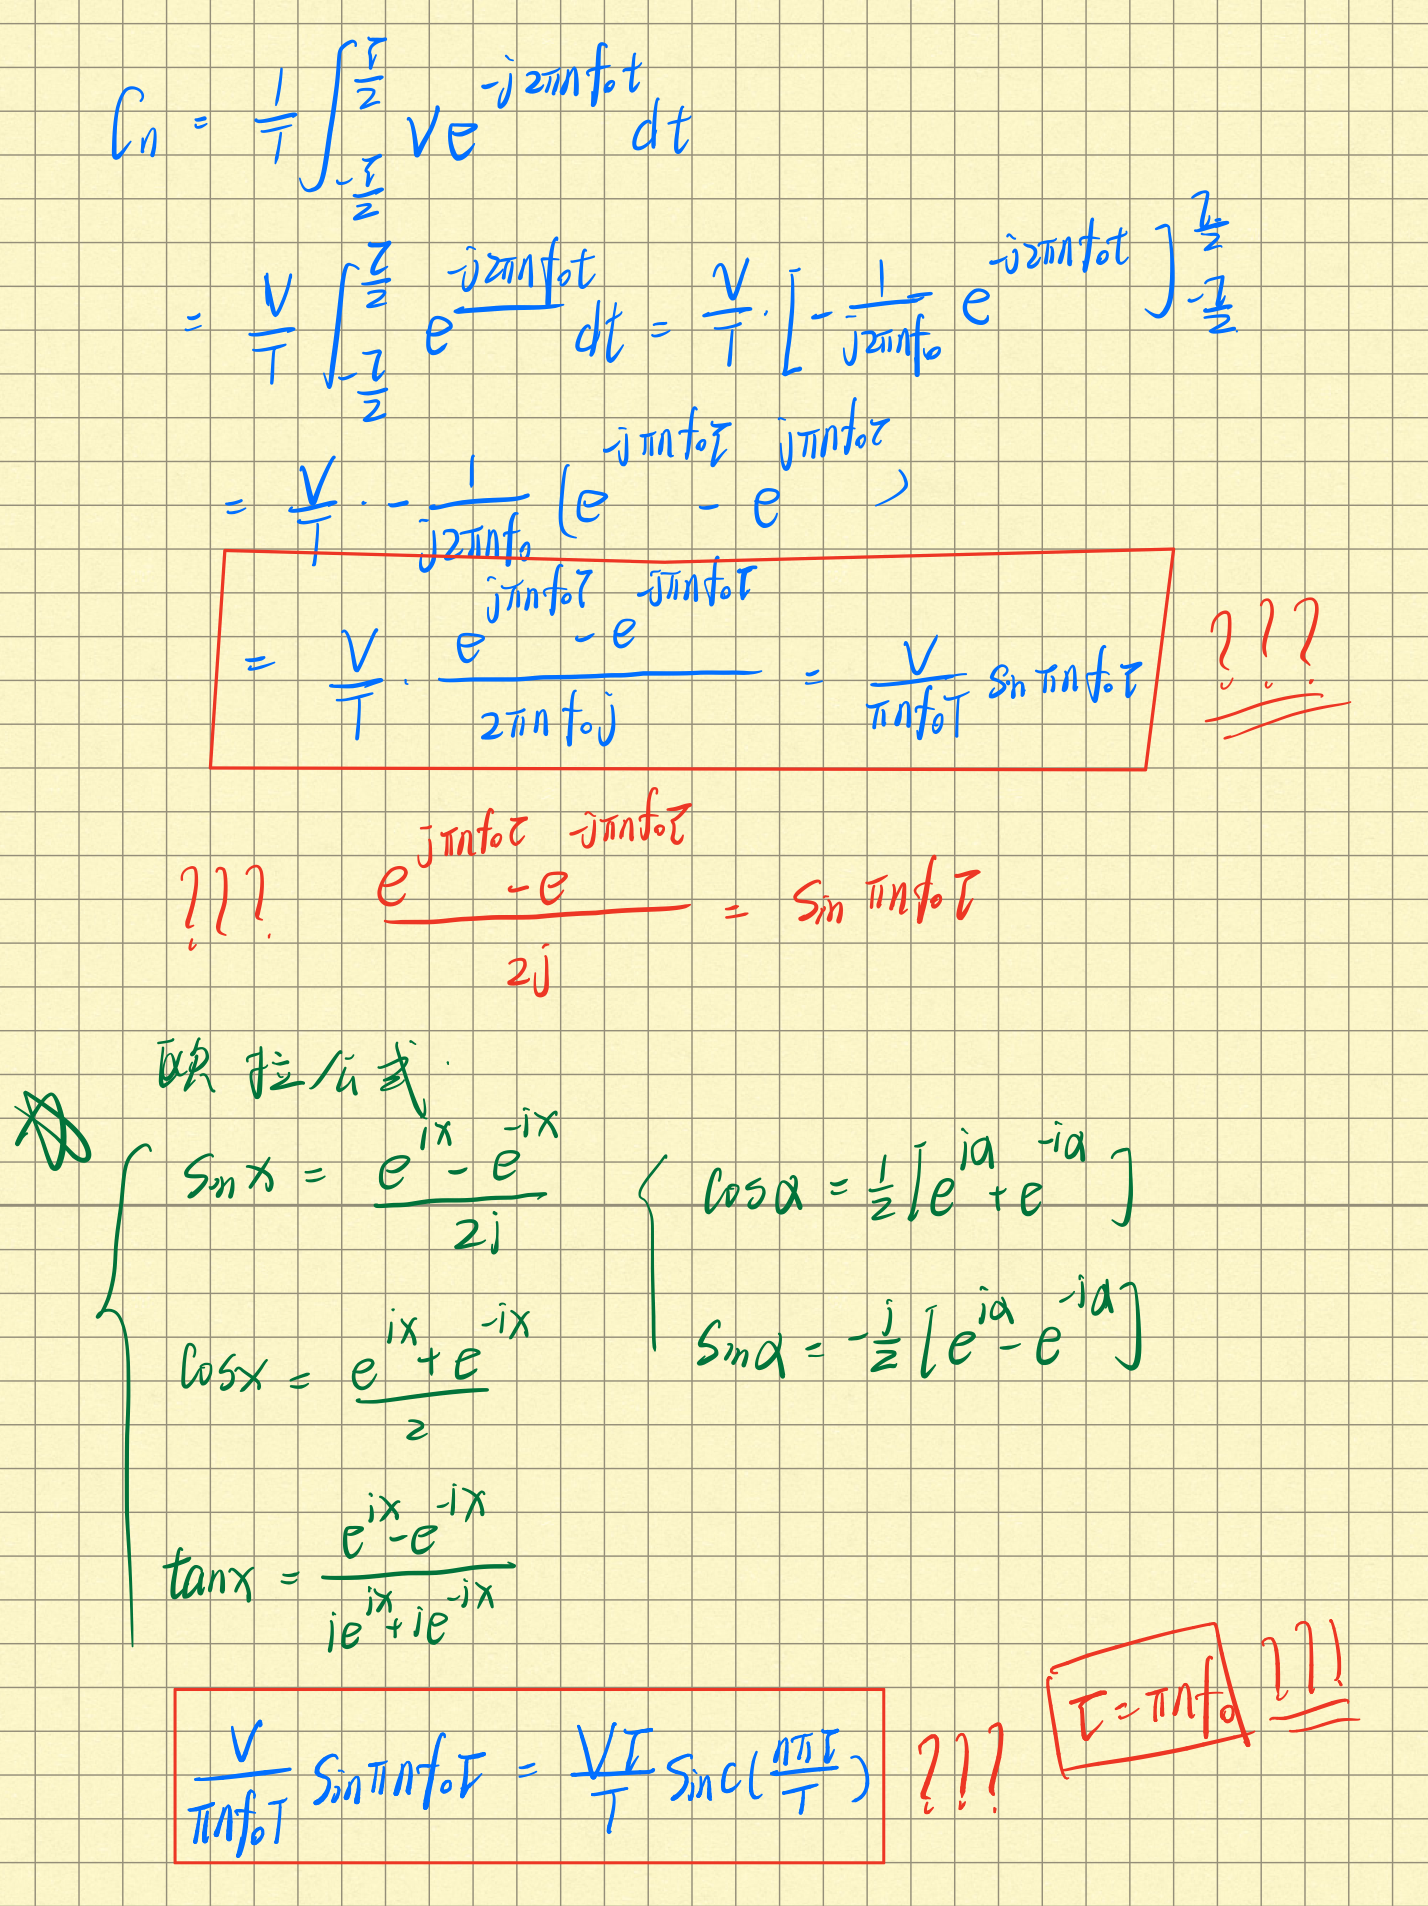 Cn = 1/T ∫_{-τ/2}^{τ/2} V e^{-j2πnf₀t} dt
= V/T ∫_{-τ/2}^{τ/2} e^{-j2πnf₀t} dt = V/T · [ -1/(j2πnf₀) e^{-j2πnf₀t} ]_{-τ/2}^{τ/2}
= V/T · - 1/(j2πnf₀) (e^{-jπnf₀τ} - e^{jπnf₀τ})
= V/T · (e^{jπnf₀τ} - e^{-jπnf₀τ})/(2πnf₀j) = V/(πnf₀T) sin πnf₀τ ???
??? (e^{jπnf₀τ} - e^{-jπnf₀τ})/(2j) = sin πnf₀τ
欧拉公式
sin x = (e^{ix} - e^{-ix})/(2j)
cosα = 1/2 [e^{iα} + e^{-iα}]
cosx = (e^{ix} + e^{-ix})/2
sinα = -j/2 [e^{iα} - e^{-iα}]
tanx = (e^{ix} - e^{-ix})/(ie^{ix} + ie^{-ix})
τ = πnf₀ ???
V/(πnf₀T) sin πnf₀τ = Vτ/T sinc(nπτ/T) ???